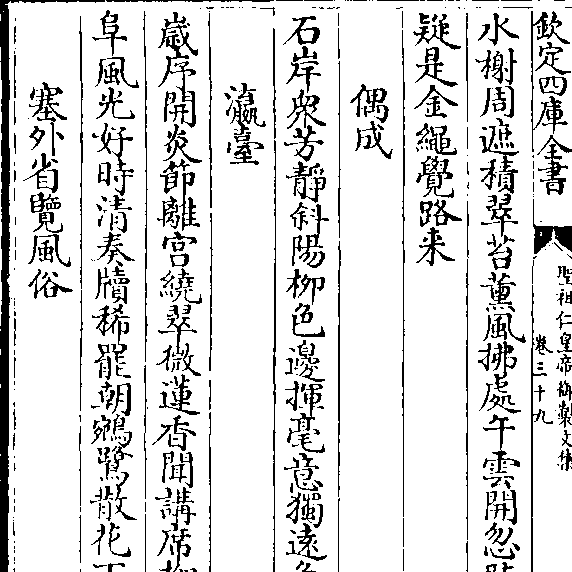 欽定四庫全書
聖祖仁皇帝御製文集
卷三十九
水榭周遮積翠苔薰風拂處午雲開忽
疑是金繩覺路来
偶成
石岸衆芳靜斜陽柳色邊揮毫意獨遠
瀛臺
歲序開炎節離宫繞翠微蓮香聞講席
阜風光好時清奏牘稀罷朝鵷鷺散花
塞外省覽風俗